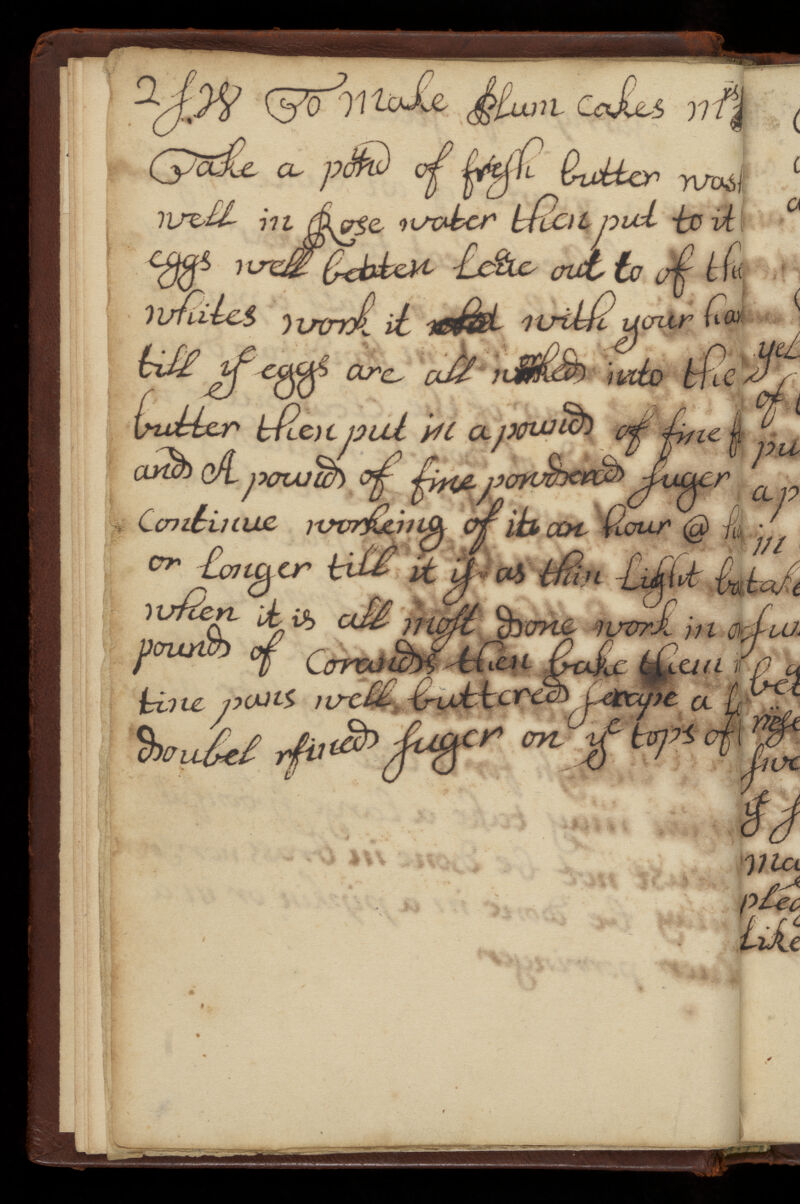 2 To Make Plum Cakes Mrs
Take a pond of fresh butter wash
well in Rose water then put to it
eggs well betten Leue out to of the
whites work it with your
till ye eggs are all worked into the
butter then put in a pound of fine
and A pound of fine powdered suger
Continue workeing of it an hour @
or Longer till it is as thin Light
when it is all most done work in
pound of Corands then bake them
tine pans well buttered scrape a
doubel rfined suger on ye tops of
yel
of
pu
a p
in
take
bet
ye
ma
Like